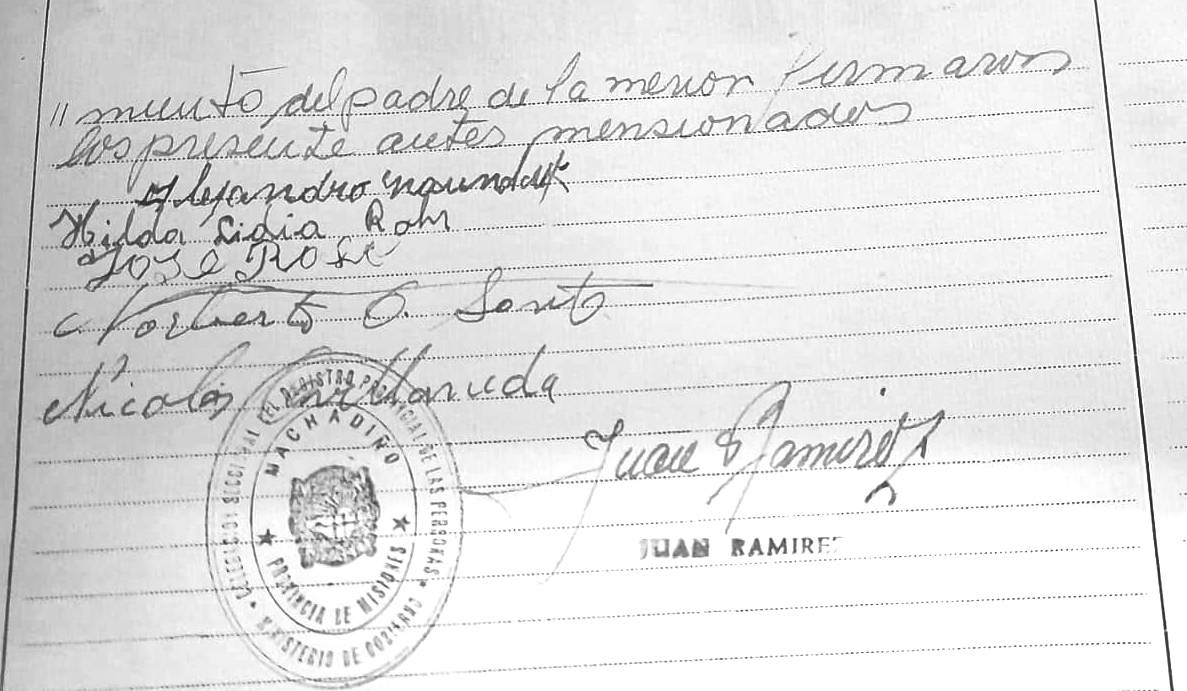 " miento del padre de la menor firmaron
los presente antes mensionados
Alejandro
Hilda Lidia Rohr
José Rose
Norberto O. Santo
Nicolás
Juan Ramirez
JUAN RAMIREZ
DELEGACION SECCIONAL DEL REGISTRO PROVINCIAL DE LAS PERSONAS
MACHADIÑO
★ PROVINCIA DE MISIONES ★
• MINISTERIO DE GOBIERNO •